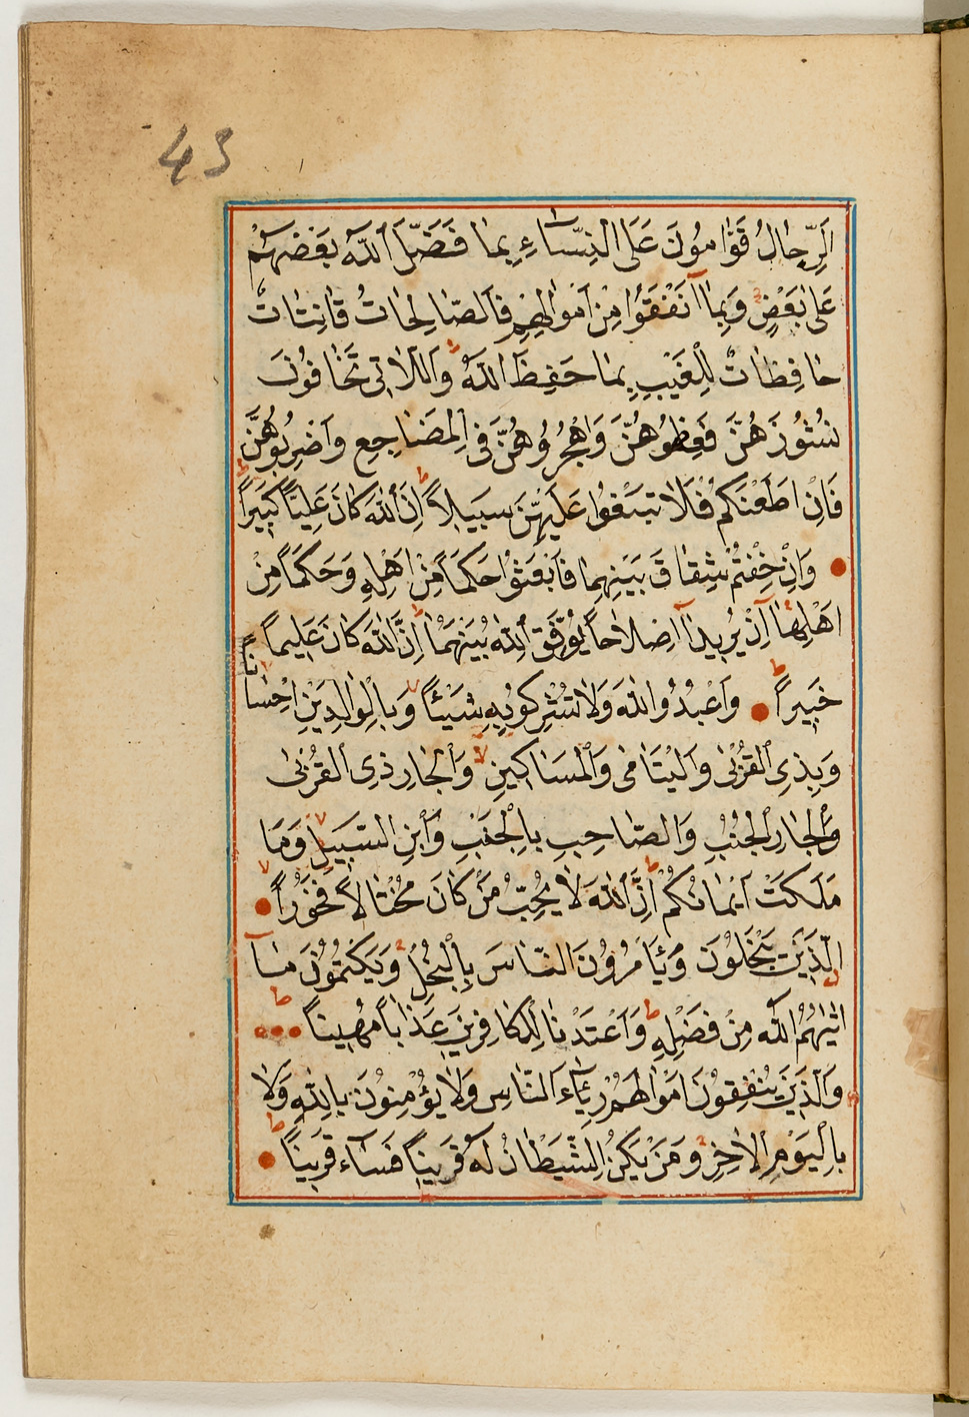 43
اَلرِّجَالُ قَوَّامُونَ عَلَى النِّسَاءِ بِمَا فَضَّلَ اللّٰهُ بَعْضَهُمْ
عَلٰى بَعْضٍ وَبِمَا اَنْفَقُوا مِنْ اَمْوَالِهِمْ فَالصَّالِحَاتُ قَانِتَاتٌ
حَافِظَاتٌ لِلْغَيْبِ بِمَا حَفِظَ اللّٰهُ وَاللَّاتِى تَخَافُونَ
نُشُوزَهُنَّ فَعِظُوهُنَّ وَاهْجُرُوهُنَّ فِى الْمَضَاجِعِ وَاضْرِبُوهُنَّ
فَاِنْ اَطَعْنَكُمْ فَلَا تَبْغُوا عَلَيْهِنَّ سَبِيلاً اِنَّ اللّٰهَ كَانَ عَلِيًّا كَبِيرًا
وَاِنْ خِفْتُمْ شِقَاقَ بَيْنِهِمَا فَابْعَثُوا حَكَمًا مِنْ اَهْلِهِ وَحَكَمًا مِنْ
اَهْلِهَا اِنْ يُرِيدَا اِصْلَاحًا يُوَفِّقِ اللّٰهُ بَيْنَهُمَا اِنَّ اللّٰهَ كَانَ عَلِيمًا
خَبِيرًا وَاعْبُدُوا اللّٰهَ وَلَا تُشْرِكُوا بِهِ شَيْئًا وَبِالْوَالِدَيْنِ اِحْسَانًا
وَبِذِى الْقُرْبٰى وَالْيَتَامٰى وَالْمَسَاكِينِ وَالْجَارِ ذِى الْقُرْبٰى
وَالْجَارِ الْجُنُبِ وَالصَّاحِبِ بِالْجَنْبِ وَابْنِ السَّبِيلِ وَمَا
مَلَكَتْ اَيْمَانُكُمْ اِنَّ اللّٰهَ لَا يُحِبُّ مَنْ كَانَ مُخْتَالاً فَخُورًا
اَلَّذِينَ يَبْخَلُونَ وَيَأْمُرُونَ النَّاسَ بِالْبُخْلِ وَيَكْتُمُونَ مَا
اٰتٰيهُمُ اللّٰهُ مِنْ فَضْلِهِ وَاَعْتَدْنَا لِلْكَافِرِينَ عَذَابًا مُهِينًا
وَالَّذِينَ يُنْفِقُونَ اَمْوَالَهُمْ رِئَاءَ النَّاسِ وَلَا يُؤْمِنُونَ بِاللّٰهِ وَلَا
بِالْيَوْمِ الْاٰخِرِ وَمَنْ يَكُنِ الشَّيْطَانُ لَهُ قَرِينًا فَسَاءَ قَرِينًا